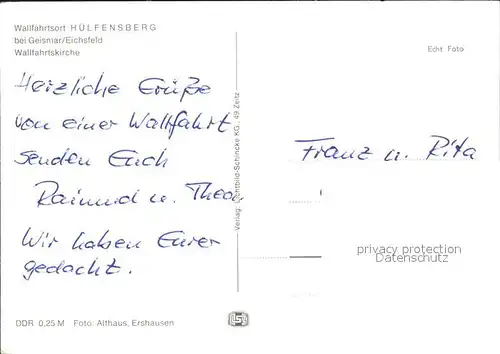 Wallfahrtsort HÜLFENSBERG
bei Geismar/Eichsfeld
Wallfahrtskirche
Echt Foto
Herzliche Grüße
von einer Wallfahrt
senden Euch
Raimund u. Theo.
Wir haben Eurer
gedacht.
Verlag: Lichtbild-Schincke KG, 49 Zeitz
Franz u. Rita
privacy protection
Datenschutz
DDR 0,25 M Foto: Althaus, Ershausen